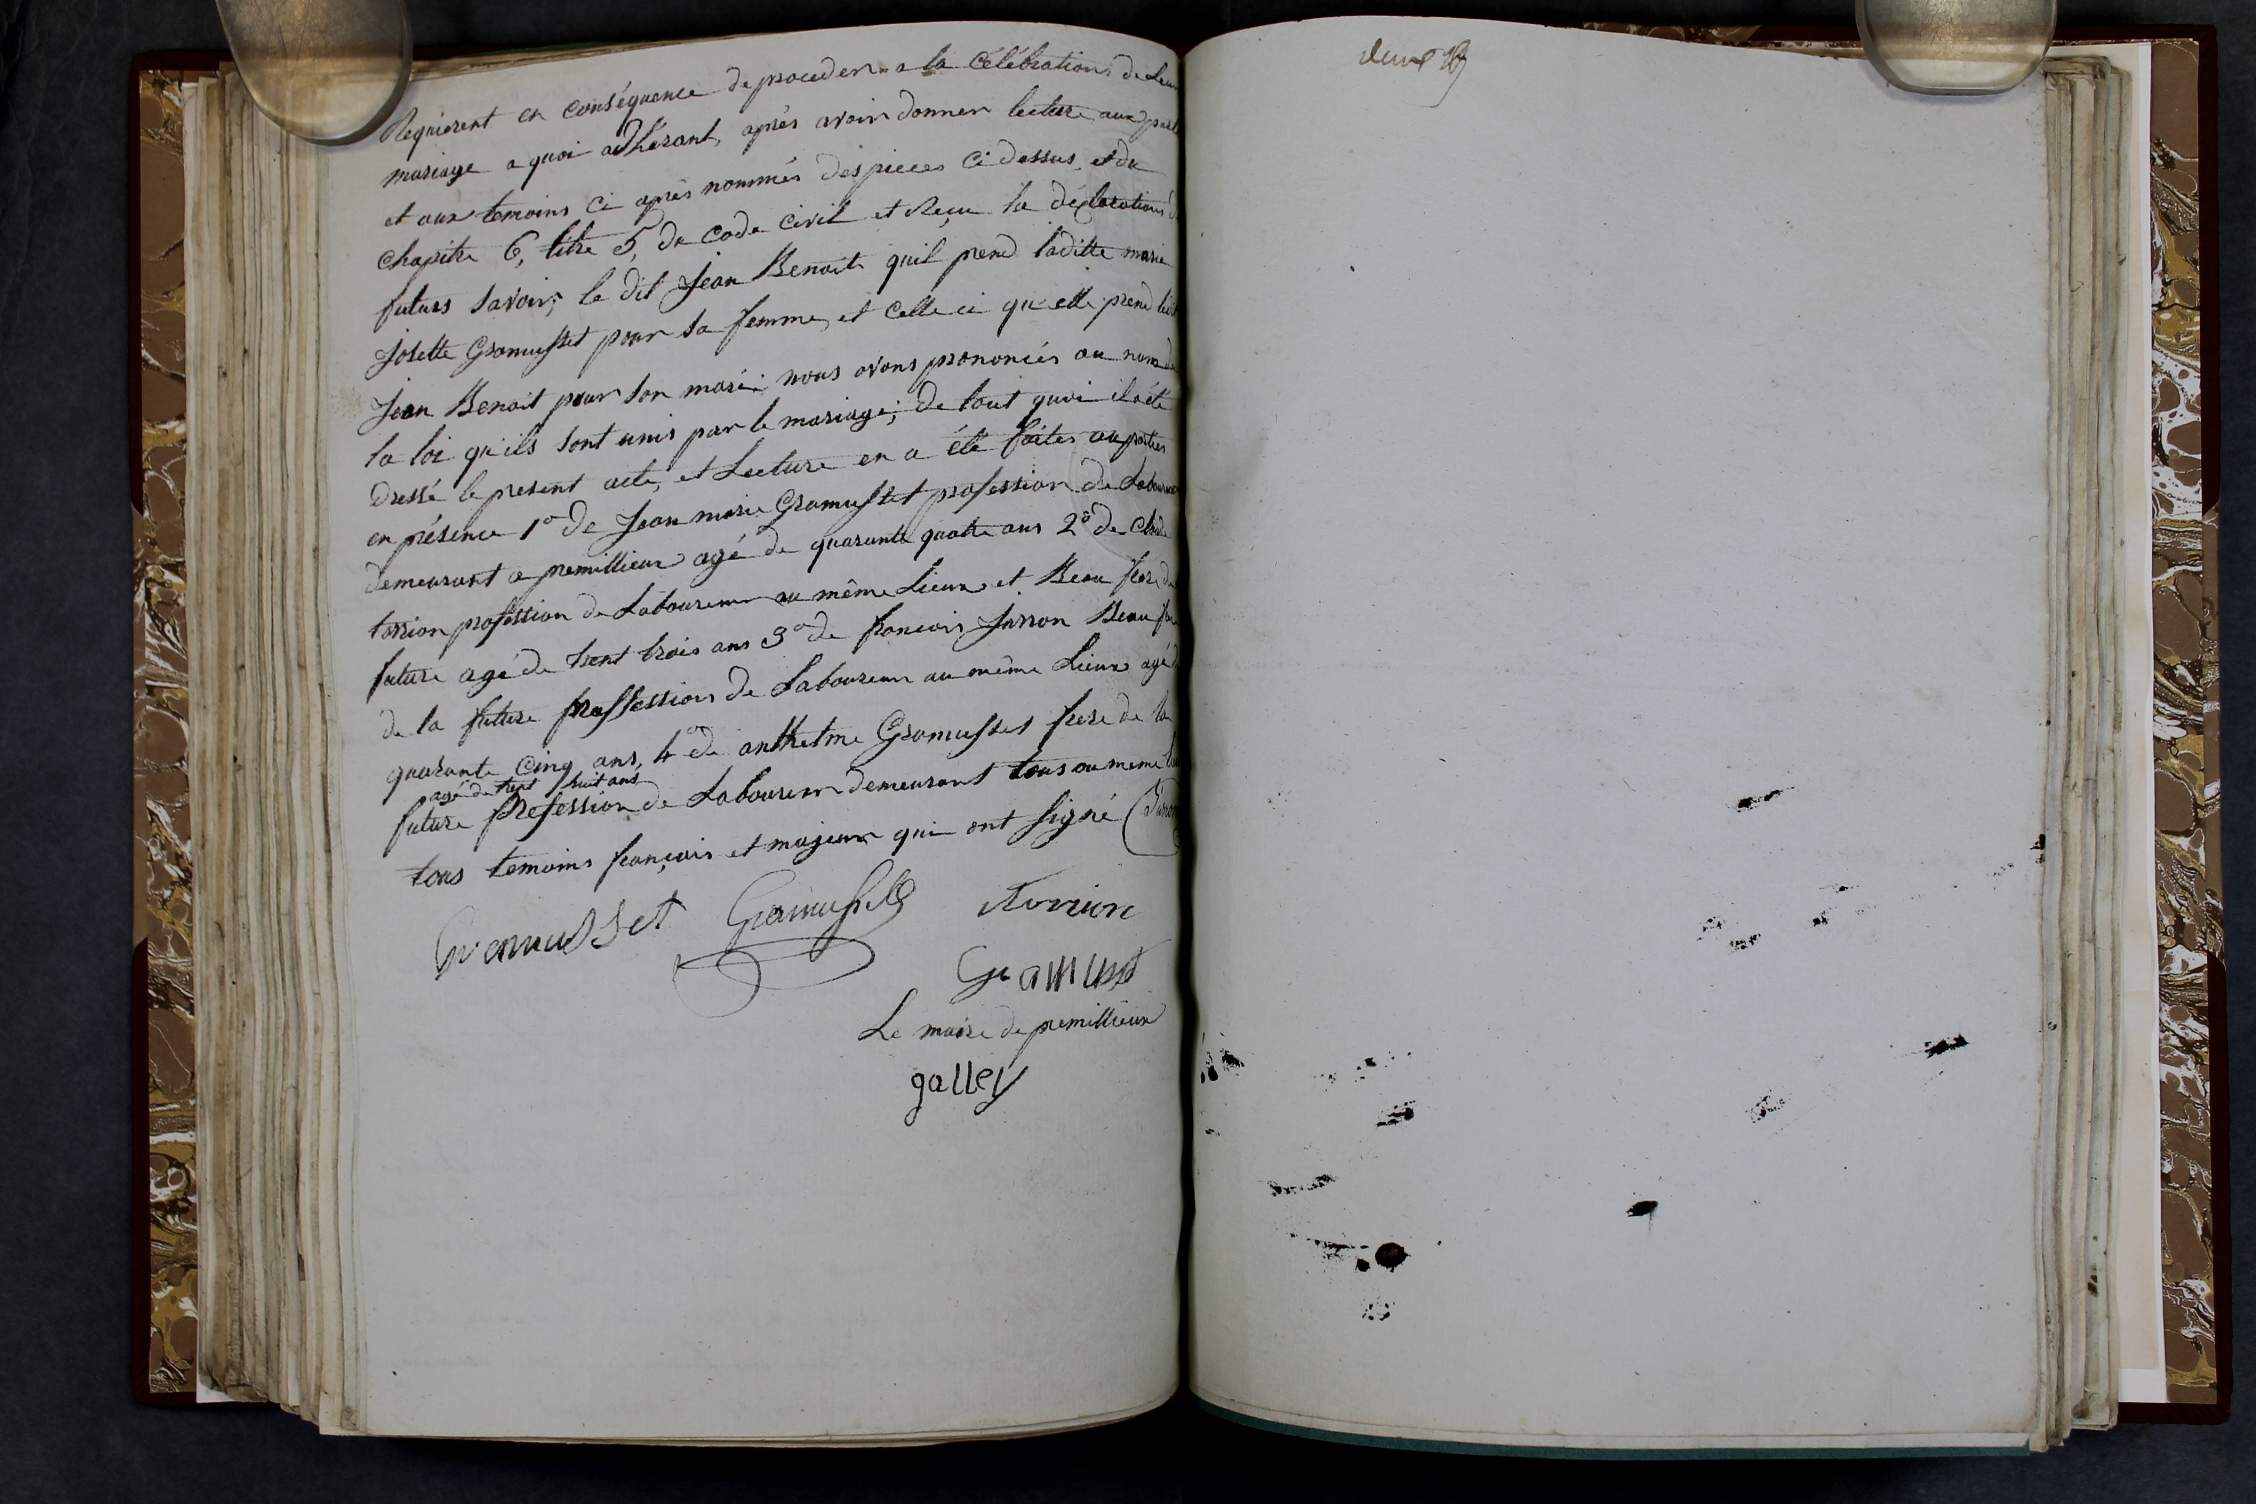 Requierent en conséquence de proceder a la célébrations de Leur
mariage a quoi adherant, après avoir donner lecture aux parti
et aux temoins ci après nommés des pieces ci dessus, et du
chapitre 6, titre 5, du code civil et Reçu la déclarations d
futurs savoir; le dit Jean Benoit quil prend laditte marie
Josette Gramusset pour sa femme, et celle ci qu'elle prend led
Jean Benoit pour son marie: nous avons prononcés au nom de
la loi qu'ils sont unis par le mariage; de tout quoi il a été
dressé le present acte, et Lecture en a été faites au parties
en présence 1o de Jean marie Gramusset profession de Laboureur
demeurant a premillieux agé de quarante quatre ans 2o de claude
torrion profession de Laboureur au même Lieux et Beau frere de
future agé de trent trois ans 3o de francois Jarron Beau frere
de la future proffession de Laboureur au même Lieux agé d
quarante cinq ans, 4o de anthelme Gramusset frere de la
agé de trent huit ans
future profession de Laboureur demeurant tous au meme lieu
tous temoins français et majeurs qui ont signé
Gramusset Gramusset torrion
Gramusset
Le maire de premillieux
galley